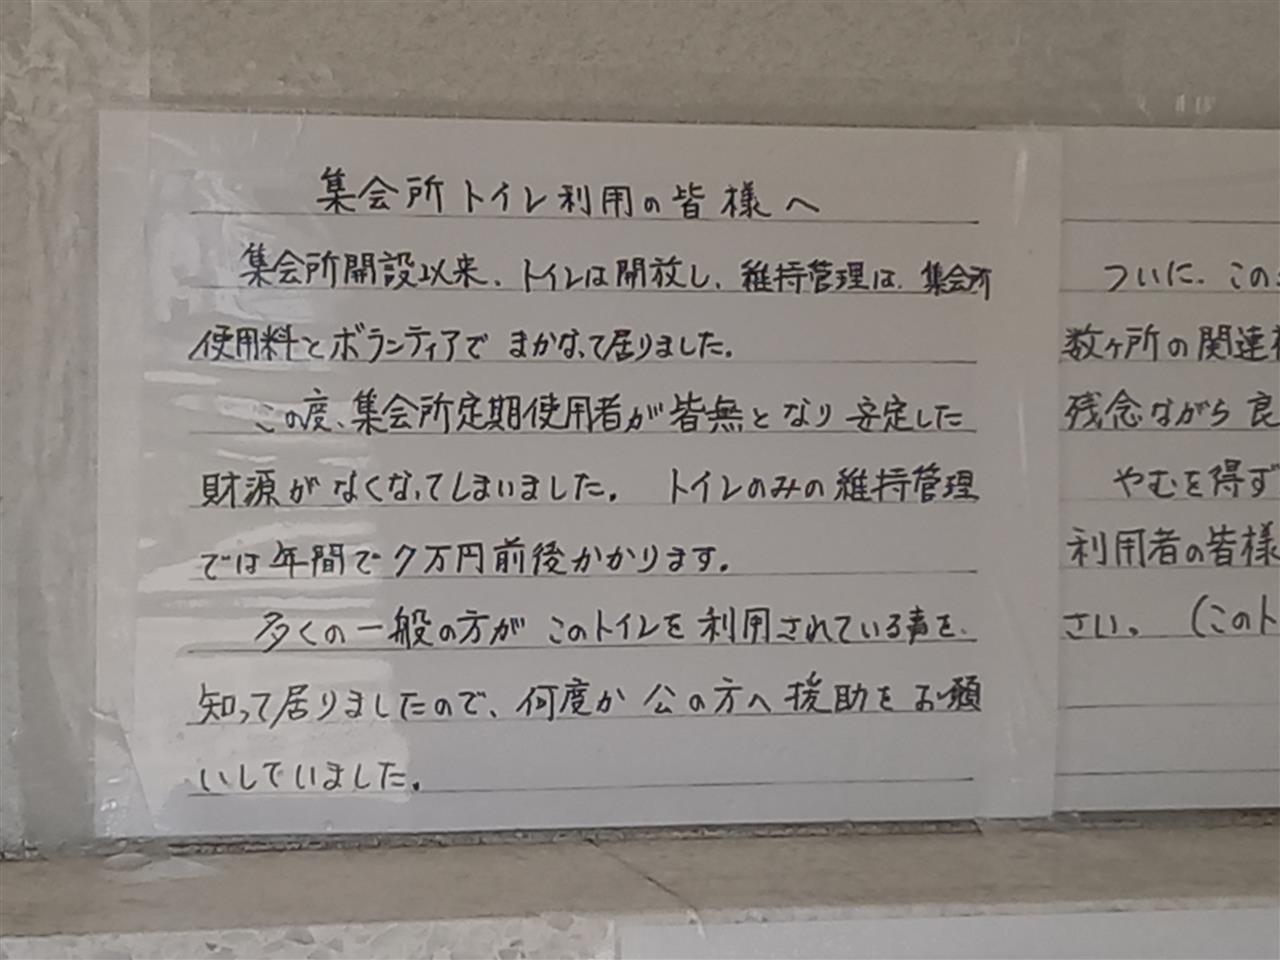 集会所トイレ利用の皆様へ
集会所開設以来、トイレは開放し、維持管理は、集会所
使用料とボランティアでまかなって居りました。
この度、集会所定期使用者が皆無となり安定した
財源がなくなってしまいました。トイレのみの維持管理
では年間で7万円前後かかります。
多くの一般の方がこのトイレを利用されている声を、
知って居りましたので、何度か公の方へ援助をお願
いしていました。
ついに、この
数ヶ所の関連
残念ながら良
やむを得ず
利用者の皆様
さい。(このト